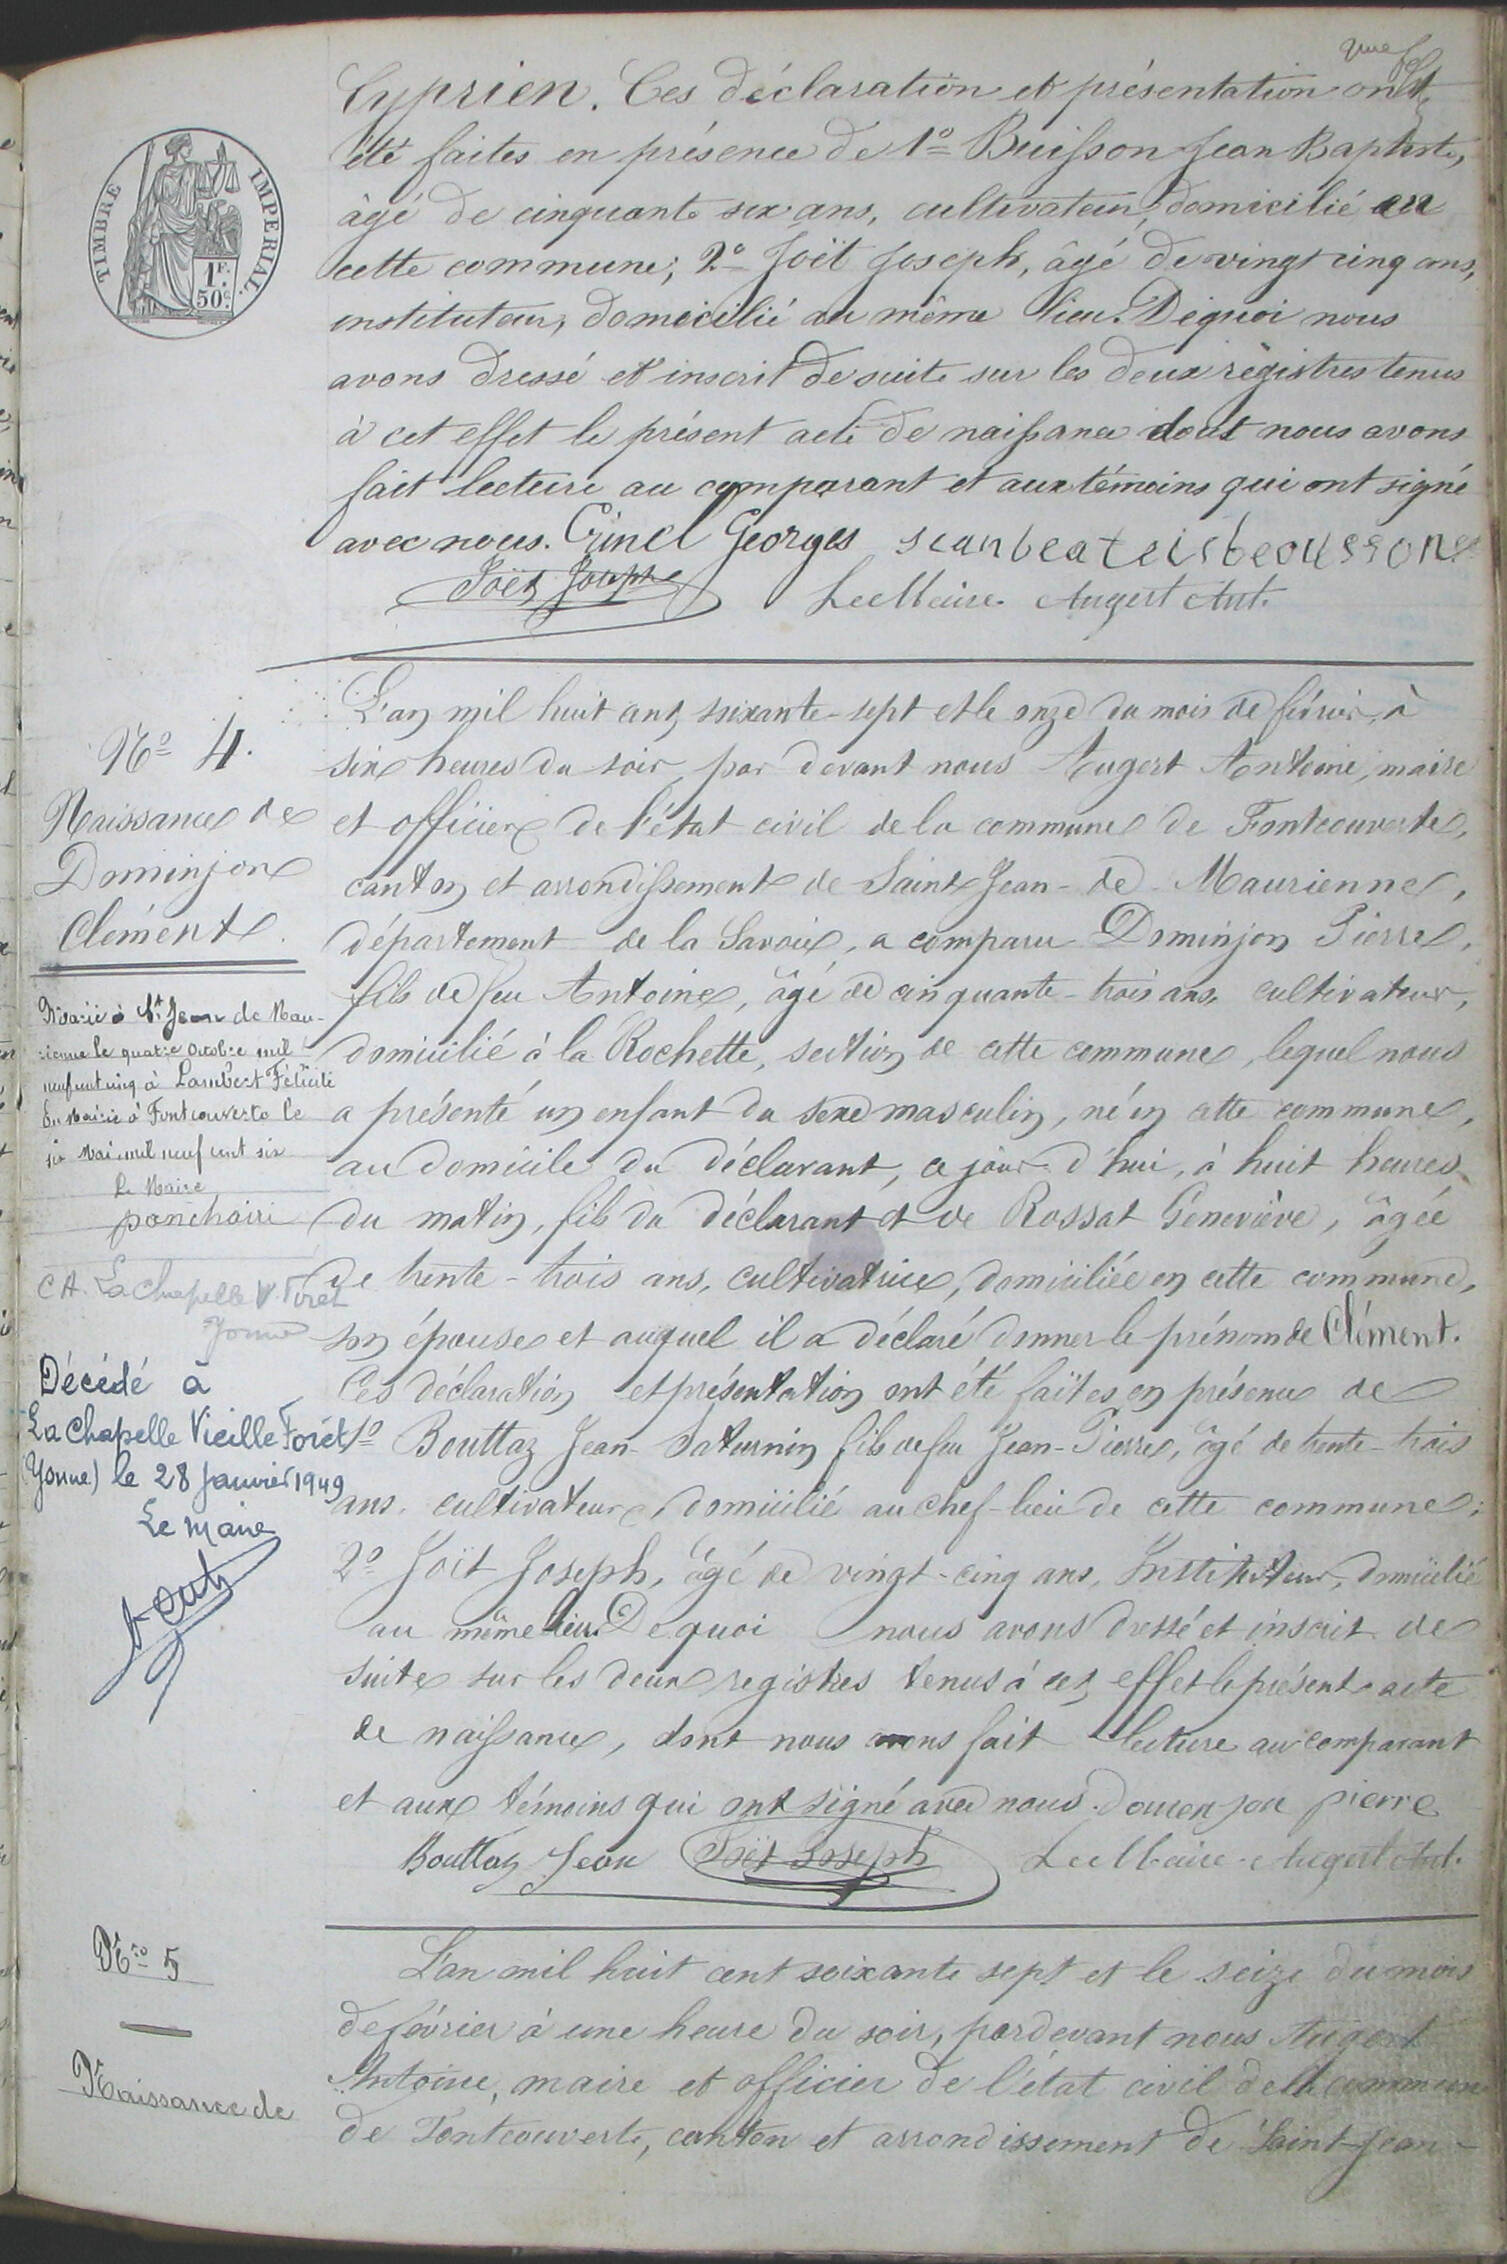 Cyprien. Ces déclaration et présentation ont
été faites en présence de 1º Buisson Jean Baptiste,
âgé de cinquante six ans, cultivateur, domicilié en
cette commune; 2º Joët Joseph, âgé de vingt cinq ans,
instituteur, domicilié au même lieu. De quoi nous
avons dressé et inscrit de suite sur les deux régistres tenus
à cet effet le présent acte de naissance dont nous avons
fait lecture au comparant et aux témoins qui ont signé
avec nous. Crinel Georges
Joët Joseph Le Maire Augert Ant.
TIMBRE IMPERIAL
1F.
50c.
Nº 4.
Naissance de
Dominjon
Clément
Marié à St Jean de Mau-
rienne le quatre Octobre mil
neuf cent cinq à Lambert Félicité
En Mairie à Fontcouverte le
six Mai mil neuf cent six
Le Maire
ponchairi
CA. La Chapelle V. Forêt
Yonne
Décédé à
La Chapelle Vieille Forêt
(Yonne) le 28 Janvier 1949
Le Maire
L'an mil huit cent soixante-sept et le onze du mois de février, à
six heures du soir, par devant nous Augert Antoine, maire
et officier de l'état civil de la commune de Fontcouverte,
canton et arrondissement de Saint Jean-de-Maurienne,
département de la Savoie, a comparu Dominjon Pierre,
fils de feu Antoine, âgé de cinquante-trois ans, cultivateur,
domicilié à la Rochette, section de cette commune, lequel nous
a présenté un enfant du sexe masculin, né en cette commune,
au domicile du déclarant, ce jour d'hui, à huit heures
du matin, fils du déclarant et de Rossat Geneviève, âgée
de trente-trois ans, cultivatrice, domiciliée en cette commune,
son épouse et auquel il a déclaré donner le prénom de Clément.
Ces déclaration et présentation ont été faites en présence de
1º Bouttaz Jean-Saturnin fils de feu Jean-Pierre, âgé de trente-trois
ans, cultivateur, domicilié au chef-lieu de cette commune;
2º Joët Joseph, âgé de vingt-cinq ans, Instituteur, domicilié
au même lieu. De quoi nous avons dressé et inscrit de
suite sur les deux registres tenus à cet effet le présent acte
de naissance, dont nous avons fait lecture au comparant
et aux témoins qui ont signé avec nous. domenjon pierre
Bouttaz Jean Joët Joseph Le Maire Augert Ant.
Nro 5
Naissance de
L'an mil huit cent soixante sept et le seize du mois
de février à une heure du soir, pardevant nous Augert
Antoine, maire et officier de l'état civil de la commune
de Fontcouverte, canton et arrondissement de Saint-Jean-